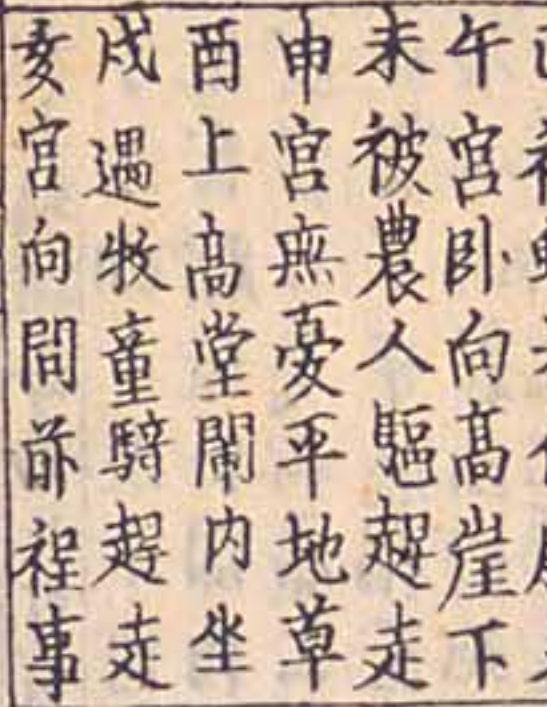 午宮卧向髙崖下
未被農人驅趕走
申宮無憂平地草
酉上髙堂閙内坐
戌遇牧童騎趕走
亥宮向問前程事